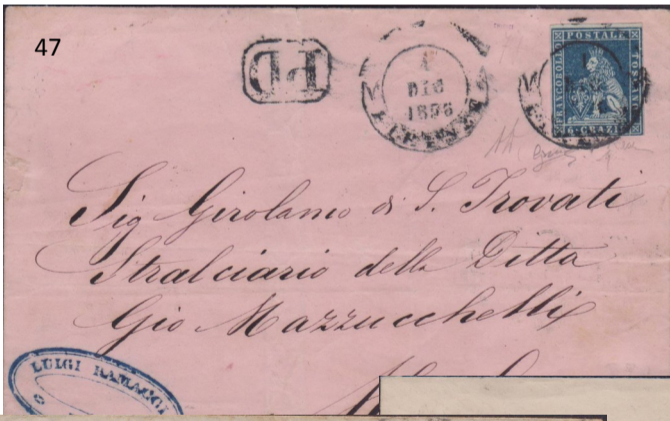 47
PD
1
DIC
1856
FIRENZE
FRANCOBOLLO POSTALE TOSCANO
6 CRAZIE
Sig Girolamo di S. Trovati
Stralciario della Ditta
Gio Mazzucchelli
LUIGI RAMACCI